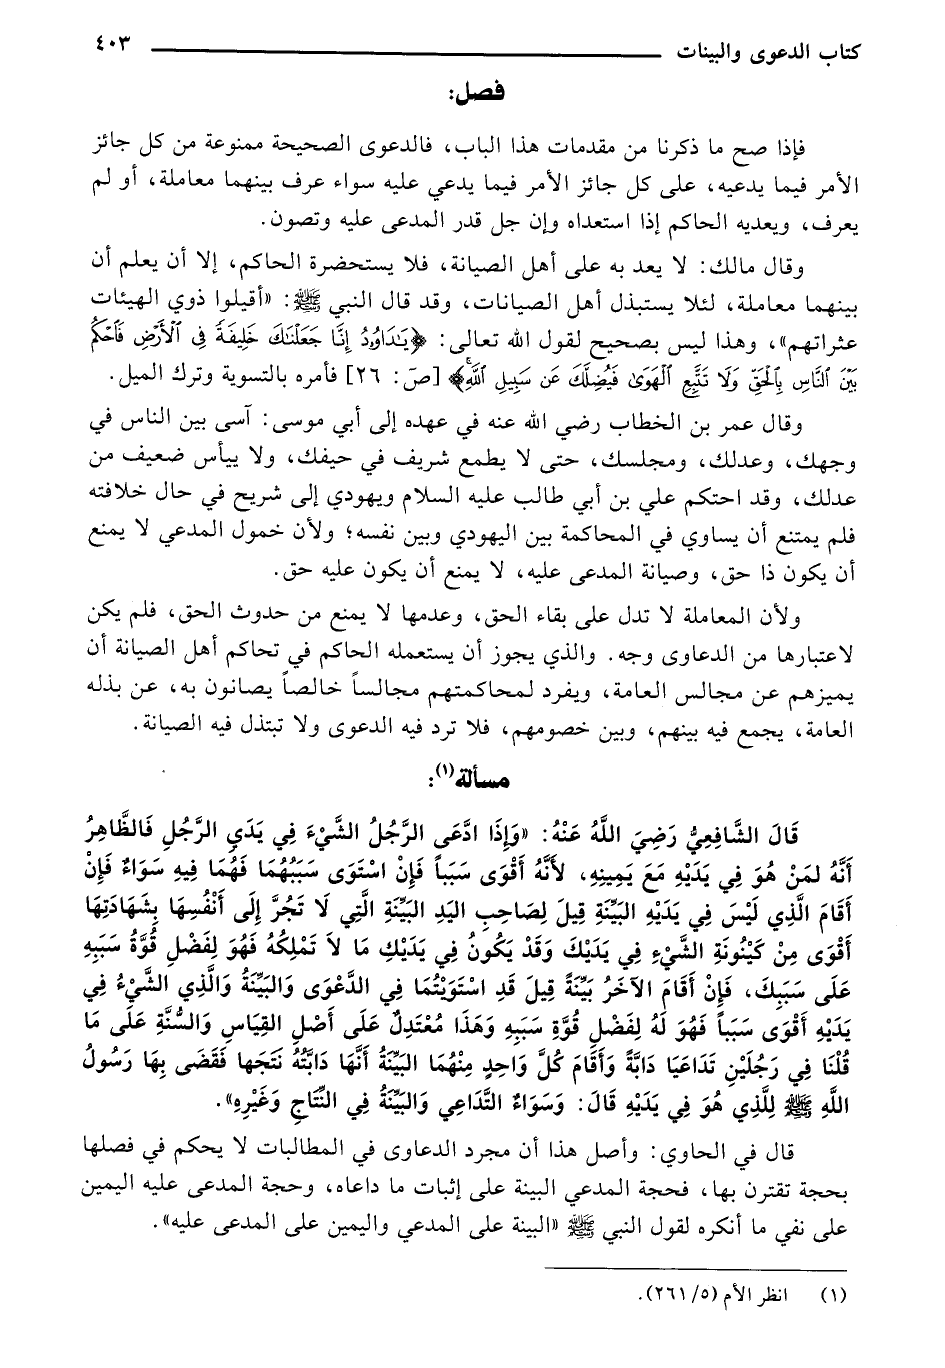 كتاب الدعوى والبينات ٤٠٣
فصل:
فإذا صح ما ذكرنا من مقدمات هذا الباب، فالدعوى الصحيحة ممنوعة من كل جائز
الأمر فيما يدعيه، على كل جائز الأمر فيما يدعي عليه سواء عرف بينهما معاملة، أو لم
يعرف، ويعديه الحاكم إذا استعداه وإن جل قدر المدعى عليه وتصون.
وقال مالك: لا يعد به على أهل الصيانة، فلا يستحضرة الحاكم، إلا أن يعلم أن
بينهما معاملة، لئلا يستبذل أهل الصيانات، وقد قال النبي ﷺ: «أقيلوا ذوي الهيئات
عثراتهم»، وهذا ليس بصحيح لقول الله تعالى: ﴿يَٰدَاوُۥدُ إِنَّا جَعَلْنَٰكَ خَلِيفَةً فِى ٱلْأَرْضِ فَٱحْكُم
بَيْنَ ٱلنَّاسِ بِٱلْحَقِّ وَلَا تَتَّبِعِ ٱلْهَوَىٰ فَيُضِلَّكَ عَن سَبِيلِ ٱللَّهِ﴾ [صۤ: ٢٦] فأمره بالتسوية وترك الميل.
وقال عمر بن الخطاب رضي الله عنه في عهده إلى أبي موسى: آسى بين الناس في
وجهك، وعدلك، ومجلسك، حتى لا يطمع شريف في حيفك، ولا ييأس ضعيف من
عدلك، وقد احتكم علي بن أبي طالب عليه السلام ويهودي إلى شريح في حال خلافته
فلم يمتنع أن يساوي في المحاكمة بين اليهودي وبين نفسه؛ ولأن خمول المدعي لا يمنع
أن يكون ذا حق، وصيانة المدعى عليه، لا يمنع أن يكون عليه حق.
ولأن المعاملة لا تدل على بقاء الحق، وعدمها لا يمنع من حدوث الحق، فلم يكن
لاعتبارها من الدعاوى وجه. والذي يجوز أن يستعمله الحاكم في تحاكم أهل الصيانة أن
يميزهم عن مجالس العامة، ويفرد لمحاكمتهم مجالساً خالصاً يصانون به، عن بذله
العامة، يجمع فيه بينهم، وبين خصومهم، فلا ترد فيه الدعوى ولا تبتذل فيه الصيانة.
مسألة(١):
قَالَ الشَّافِعِيُّ رَضِيَ اللَّهُ عَنْهُ: «وَإِذَا ادَّعَى الرَّجُلُ الشَّيْءَ فِي يَدَيِ الرَّجُلِ فَالظَّاهِرُ
أَنَّهُ لمَنْ هُوَ فِي يَدَيْهِ مَعَ يَمِينِهِ، لأَنَّهُ أَقْوَى سَبَباً فَإِنْ اسْتَوَى سَبَبُهُمَا فَهُمَا فِيهِ سَوَاءٌ فَإِنْ
أَقَامَ الَّذِي لَيْسَ فِي يَدَيْهِ البَيِّنَةِ قِيلَ لِصَاحِبِ اليَدِ البَيِّنَةِ الَّتِي لَا تَجُرَّ إِلَى أَنْفُسِهَا بِشَهَادَتِهَا
أَقْوَى مِنْ كَيْنُونَةِ الشَّيْءِ فِي يَدَيْكَ وَقَدْ يَكُونُ فِي يَدَيْكَ مَا لاَ تَمْلِكُهُ فَهُوَ لِفَضْلِ قُوَّةُ سَبَبِهِ
عَلَى سَبَبِكَ، فَإِنْ أَقَامَ الآخَرُ بَيِّنَةً قِيلَ قَدِ اسْتَوَيْتُمَا فِي الدَّعْوَى وَالبَيِّنَةُ وَالَّذِي الشَّيْءُ فِي
يَدَيْهِ أَقْوَى سَبَباً فَهُوَ لَهُ لِفَضْلِ قُوَّةِ سَبَبِهِ وَهَذَا مُعْتَدِلٌ عَلَى أَصْلِ القِيَاسِ وَالسُّنَّةِ عَلَى مَا
قُلْنَا فِي رَجُلَيْنِ تَدَاعَيَا دَابَّةً وَأَقَامَ كُلَّ وَاحِدٍ مِنْهُمَا البَيِّنَةُ أَنَّهَا دَابَّتُهُ نَتَجَها فَقَضَى بِهَا رَسُولُ
اللَّهِ ﷺ لِلَّذِي هُوَ فِي يَدَيْهِ قَالَ: وَسَوَاءٌ التَّدَاعِي وَالبَيِّنَةُ فِي النِّتَاجِ وَغَيْرِهِ».
قال في الحاوي: وأصل هذا أن مجرد الدعاوى في المطالبات لا يحكم في فصلها
بحجة تقترن بها، فحجة المدعي البينة على إثبات ما داعاه، وحجة المدعى عليه اليمين
على نفي ما أنكره لقول النبي ﷺ «البينة على المدعي واليمين على المدعى عليه».
(١) انظر الأم (٥/ ٢٦١).